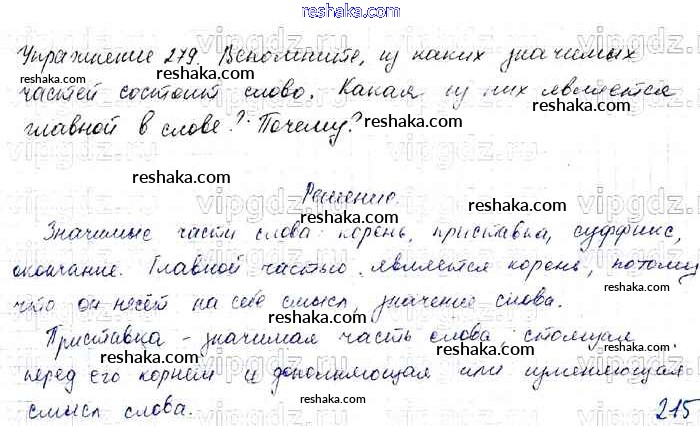 reshaka.com
Упражнение 279. Вспомните, из каких значимых
reshaka.com reshaka.com reshaka.com
частей состоит слово. Какая из них является
reshaka.com
главной в слове? Почему?
reshaka.com reshaka.com
Решение.
reshaka.com reshaka.com
Значимые части слова: корень, приставка, суффикс,
reshaka.com reshaka.com
окончание. Главной частью является корень, потому
reshaka.com reshaka.com reshaka.com
что он несёт на себе смысл, значение слова.
reshaka.com reshaka.com
Приставка - значимая часть слова, стоящая
reshaka.com reshaka.com reshaka.com
перед его корнем и дополняющая или изменяющая
reshaka.com reshaka.com
смысл слова.
215